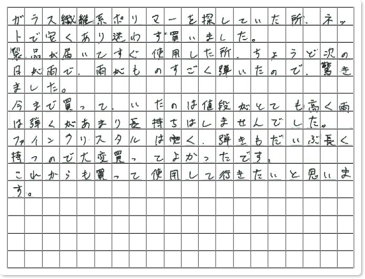 ガラス繊維系ポリマーを探していた所、ネッ
トで安くあり迷わず買いました。
製品が届いてすぐ使用した所、ちょうど次の
日が雨で、雨がものすごく弾いたので、驚き
ました。
今まで買って、いたのは値段がとても高く雨
は弾くがあまり長持ちはしませんでした。
ファインクリスタルは安く、弾きもだいぶ長く
持つので大変買ってよかったです。
これからも買って使用して行きたいと思いま
す。